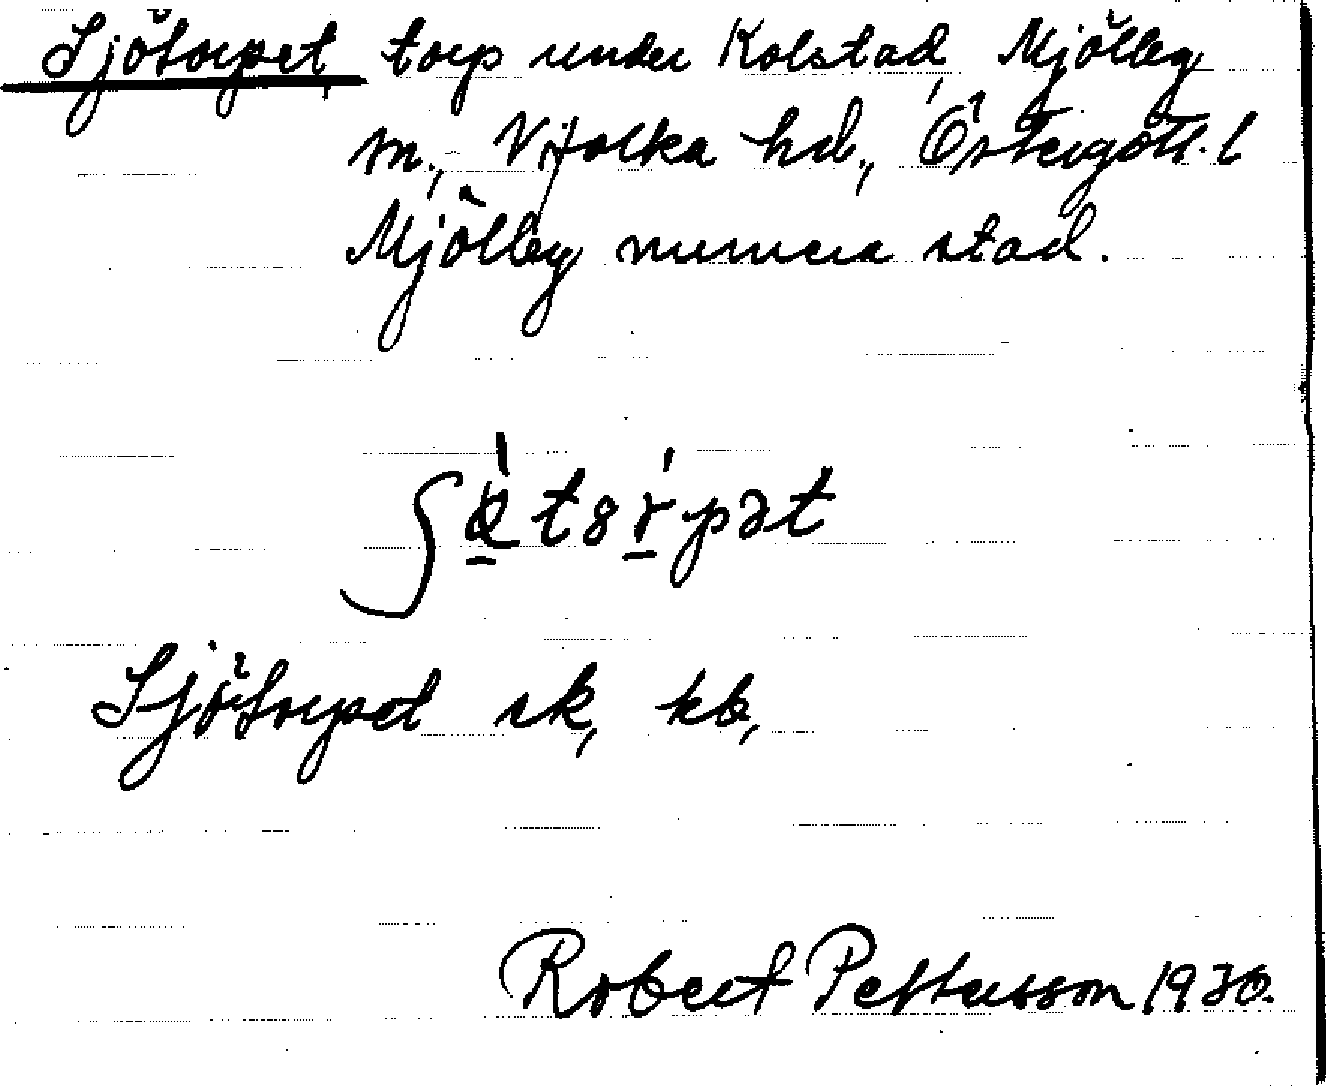 Sjötorpet, torp under Kolstad, Mjölby
m., Vifolka hd., Östergötl. l
Mjölby numera stad.
Sjötorpet sk, kb,
Robert Pettersson 1930.